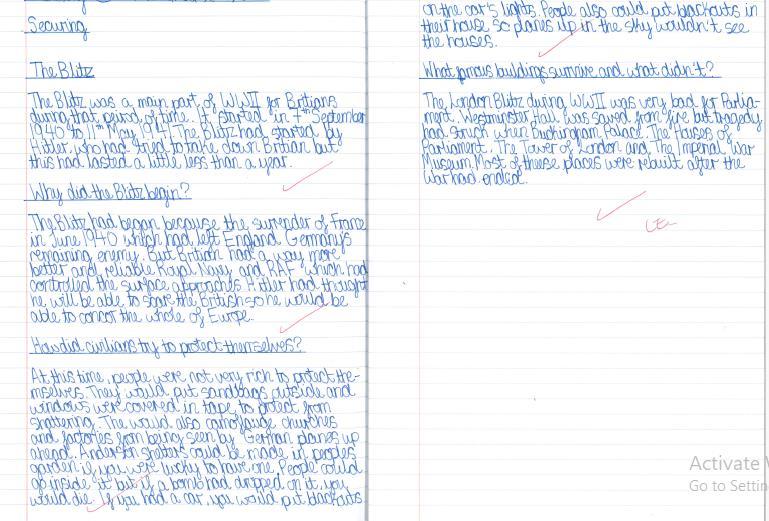 Securing
The Blitz
The Blitz was a main part of WWII for Britians
during that peirod of time. It started in 7th September
1940 to 11th May 1941. The Blitz had started by
Hitler, who had tried to take down Britian but
this had lasted a little less than a year.
Why did the Blitz begin?
The Blitz had began because the surrender of France
in June 1940 which had left England Germany's
remaining enemy. But Britian had a way more
better and reliable Royal Navy and RAF which had
controlled the surface approaches. Hitler had thought
he will be able to scare the British so he would be
able to concor the whole of Europe.
How did civilians try to protect themselves?
At this time, people were not very rich to protect the-
mselves. They would put sandbags outside and
windows were covered in tape to protect from
shattering. The would also camoflauge churches
and factories from being seen by German planes up
ahead. Anderson shelters could be made in peoples
garden if you were lucky to have one. People could
go inside it but if a bomb had dropped on it, you
would die. If you had a car, you would put blackouts
on the car's lights. People also could put blackouts in
their house so planes up in the sky wouldn't see
the houses.
What famous buildings survive and what didn't?
The London Blitz during WWII was very bad for Parlia-
ment. Westminster Hall was saved from fire but tragedy
had struch when Buckingham Palace. The Houses of
Parliament, The Tower of London and The Imperial War
Museum. Most of theese places were rebuilt after the
war had ended.
Activate
Go to Settin